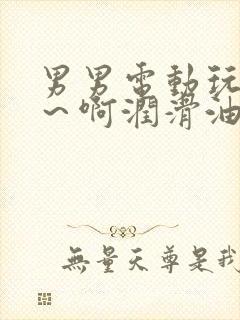 男男電動玩
~啊潤滑油
無量天尊是我